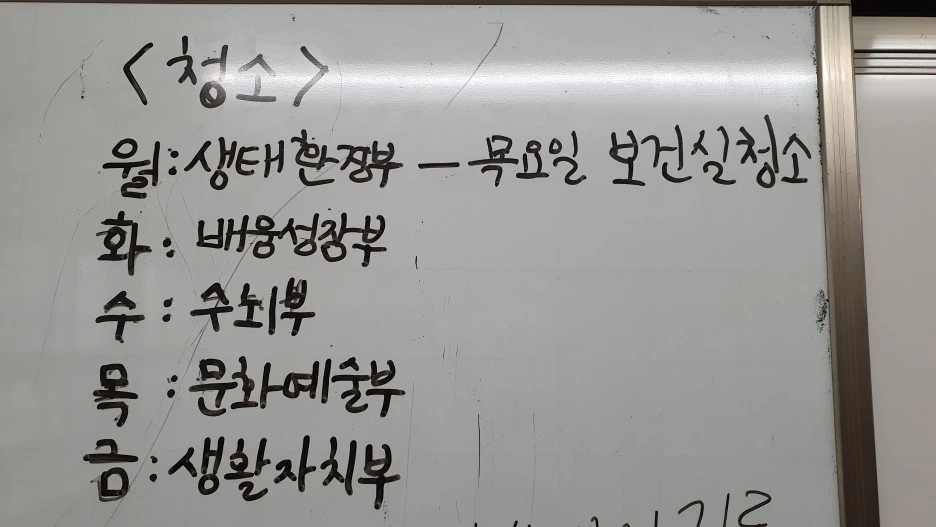 <청소>
월: 생태환경부 – 목요일 보건실청소
화: 배움성장부
수: 수뇌부
목: 문화예술부
금: 생활자치부